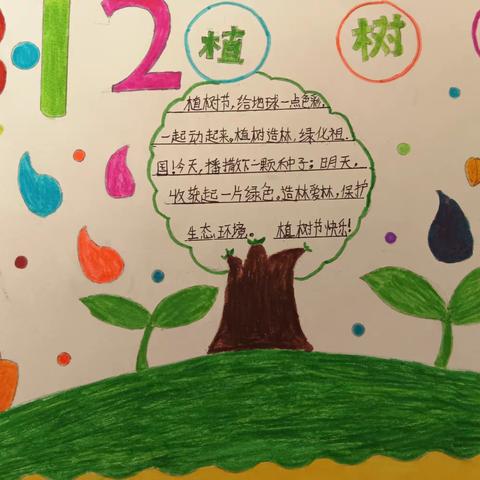 12 植 树
植树节,给地球一点色彩,
一起动起来。植树造林,绿化祖
国!今天,播撒下一颗种子;明天,
收获起一片绿色。造林爱林,保护
生态环境。 植树节快乐!